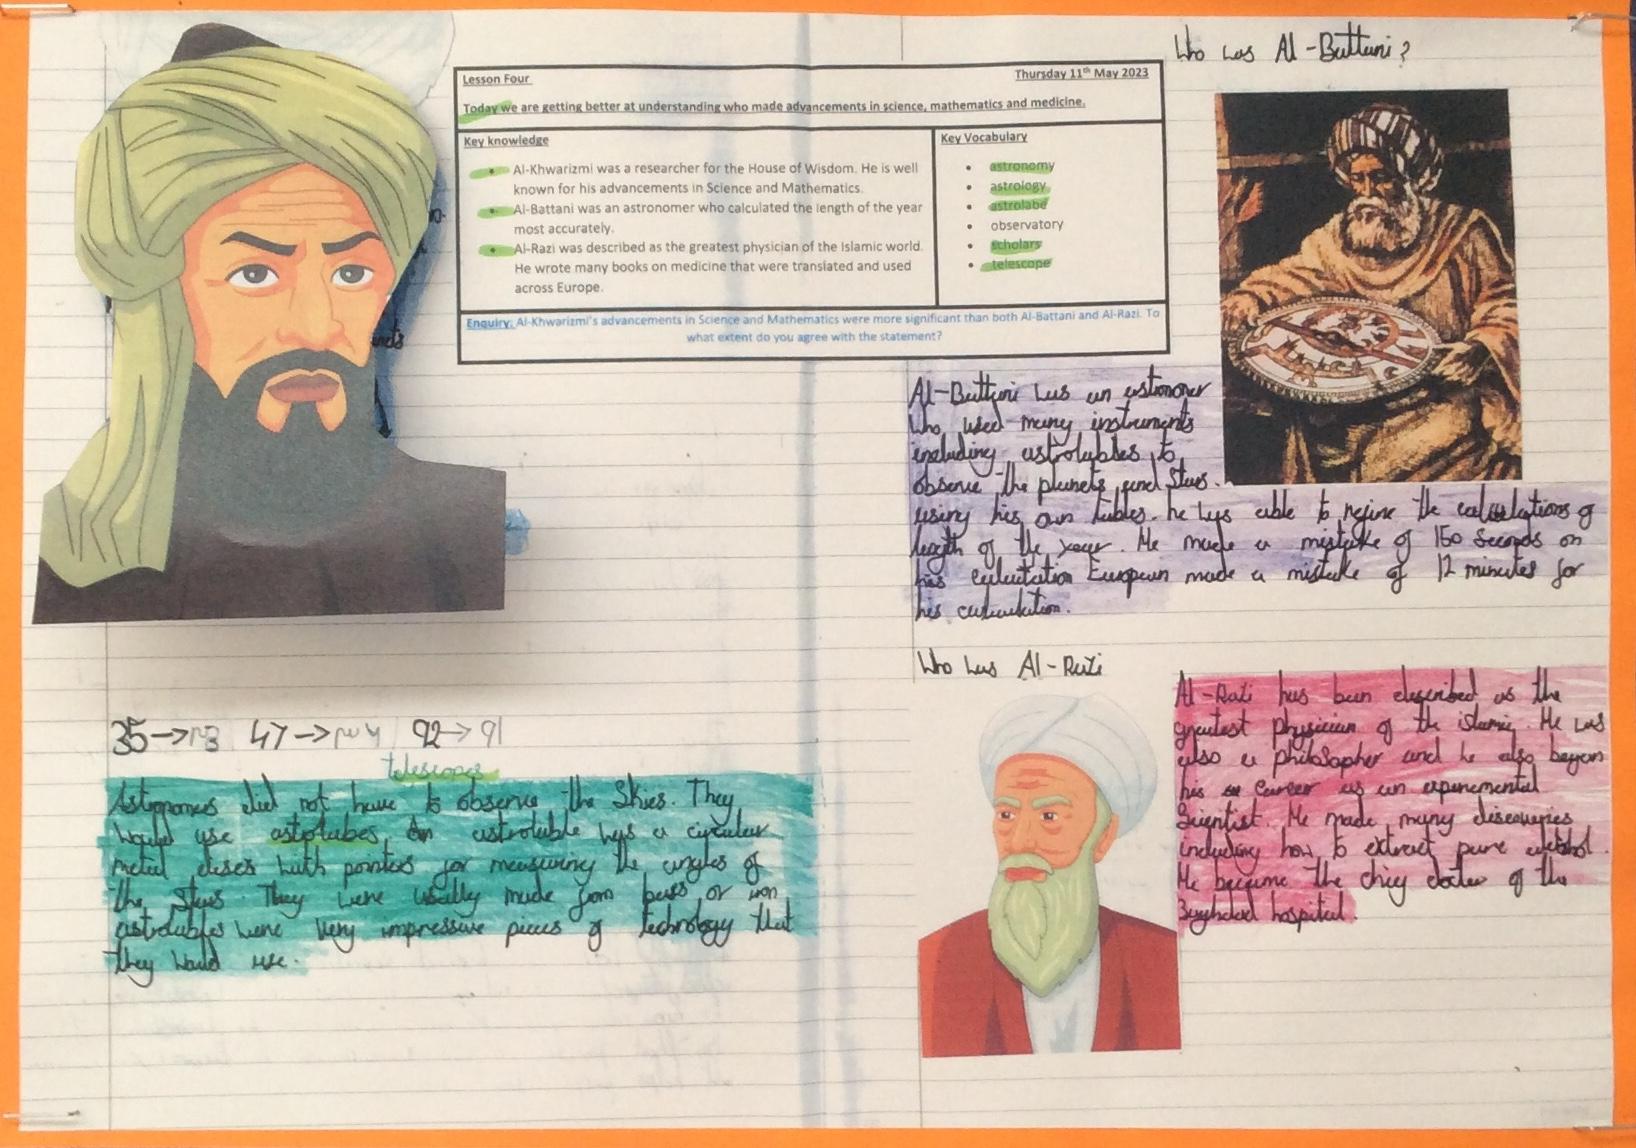 Lesson Four
Thursday 11th May 2023
Today we are getting better at understanding who made advancements in science, mathematics and medicine.
Key knowledge
• Al-Khwarizmi was a researcher for the House of Wisdom. He is well
known for his advancements in Science and Mathematics.
• Al-Battani was an astronomer who calculated the length of the year
most accurately.
• Al-Razi was described as the greatest physician of the Islamic world.
He wrote many books on medicine that were translated and used
across Europe.
Key Vocabulary
• astronomy
• astrology
• astrolabe
• observatory
• scholars
• telescope
Enquiry: Al-Khwarizmi's advancements in Science and Mathematics were more significant than both Al-Battani and Al-Razi. To
what extent do you agree with the statement?
35→ 47→ 92→
telescopes
Astronomers did not have to observe the skies. They
would use astrolabes. An astrolable was a circular
metal discs with pointers for measuring the angles of
the stars. They were usally made from bras or iron
astrolabes were very impressive pieces of technology that
they would use.
Who was Al-Battani?
Al-Battani was an astronomer
who used many instruments
including astrolables to
observe the planets and stars.
using his own tables. he was able to refine the calculations of
length of the year. He made a mistake of 150 seconds on
his calculation European made a mistake of 12 minutes for
his calculation.
Who was Al-Razi
Al-Razi has been described as the
greatest physician of the islamic. He was
also a philosopher and he also began
his career as an experemental
Scientist. He made many discoveries
including how to extract pure alcohol.
He became the chief doctor of the
Baghdad hospital.